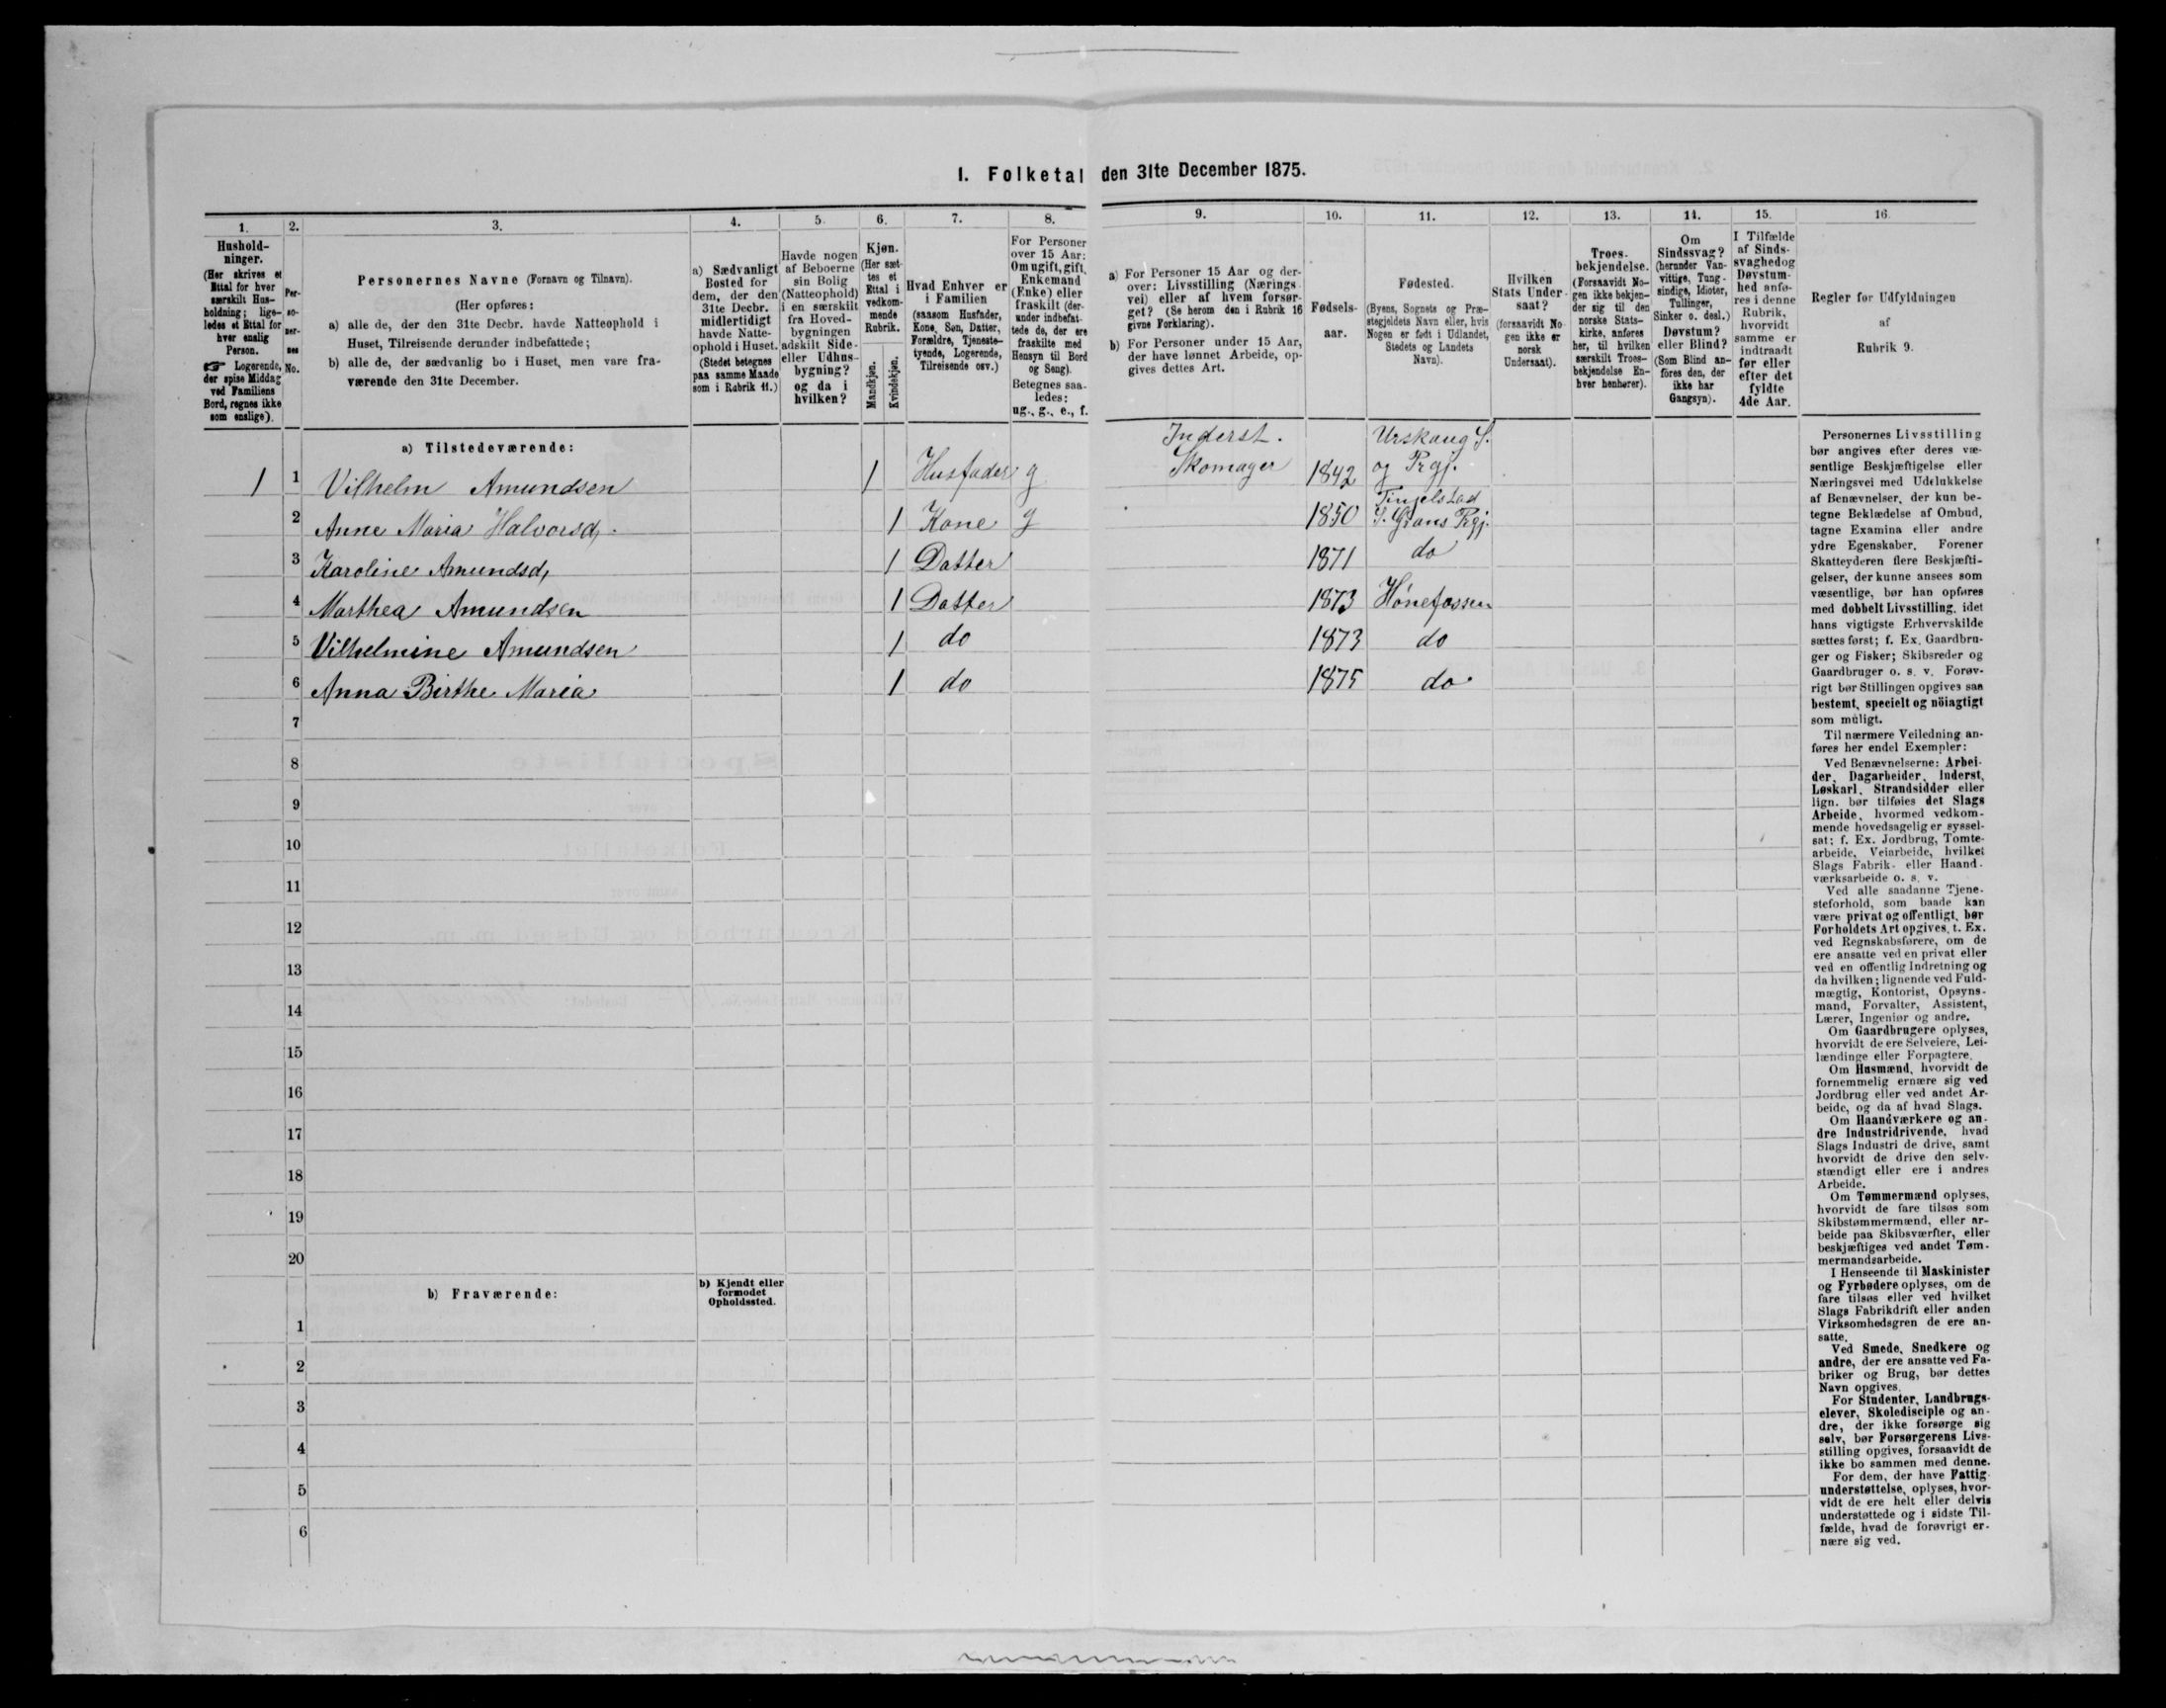 I. Folketal den 31te December 1875.
1.
Hushold-
ninger.
(Her skrives et
Ettal for hver
særskilt Hus-
holdning; lige-
ledes et Ettal for
hver enslig
Person.
☞ Logerende,
der spise Middag
ved Familiens
Bord, regnes ikke
som enslige).
2.
Per-
so-
ner-
nes
No.
3.
Personernes Navne (Fornavn og Tilnavn).
(Her opføres:
a) alle de, der den 31te Decbr. havde Natteophold i
Huset, Tilreisende derunder indbefattede;
b) alle de, der sædvanlig bo i Huset, men vare fra-
værende den 31te December.
4.
a) Sædvanligt
Bosted for
dem, der den
31te Decbr.
midlertidigt
havde Natte-
ophold i Huset.
(Stedet betegnes
paa samme Maade
som i Rubrik 11.)
5.
Havde nogen
af Beboerne
sin Bolig
(Natteophold)
i en særskilt
fra Hoved-
bygningen
adskilt Side-
eller Udhus-
bygning?
og da i
hvilken?
6.
Kjøn.
(Her sæt-
tes et
Ettal i
vedkom-
mende
Rubrik.
Mandkjøn.
Kvindekjøn.
7.
Hvad Enhver er
i Familien
(saasom Husfader,
Kone, Søn, Datter,
Forældre, Tjeneste-
tyende, Logerende,
Tilreisende osv.)
8.
For Personer
over 15 Aar:
Om ugift, gift,
Enkemand
(Enke) eller
fraskilt (der-
under indbefat-
tede de, der ere
fraskilte med
Hensyn til Bord
og Seng).
Betegnes saa-
ledes:
ug., g., e., f.
9.
a) For Personer 15 Aar og der-
over: Livsstilling (Nærings
vei) eller af hvem forsør-
get? (Se herom den i Rubrik 16
givne Forklaring).
b) For Personer under 15 Aar,
der have lønnet Arbeide, op-
gives dettes Art.
10.
Fødsels-
aar.
11.
Fødested.
(Byens, Sognets og Præ-
stegjeldets Navn eller, hvis
Nogen er født i Udlandet,
Stedets og Landets
Navn).
12.
Hvilken
Stats Under-
saat?
(forsaavidt No-
gen ikke er
norsk
Undersaat).
13.
Troes-
bekjendelse.
(Forsaavidt No-
gen ikke bekjen-
der sig til den
norske Stats-
kirke, anføres
her, til hvilken
særskilt Troes-
bekjendelse En-
hver henhører).
14.
Om
Sindssvag?
(herunder Van-
vittige, Tung-
sindige, Idioter,
Tullinger,
Sinker o. desl.)
Døvstum?
eller Blind?
(Som Blind an-
føres den, der
ikke har
Gangsyn).
15.
I Tilfælde
af Sinds-
svaghed og
Døvstum-
hed anfø-
res i denne
Rubrik,
hvorvidt
samme er
indtraadt
før eller
efter det
fyldte
4de Aar.
16.
Regler for Udfyldningen
af
Rubrik 9.
a) Tilstedeværende:
1 1 Vilhelm Amundsen 1 Husfader g Inderst. Skomager 1842 Urskaug S. og Prgj.
2 Anne Maria Halvorsd. 1 Kone g 1850 Tingelstad S. Grans Prgj.
3 Karoline Amundsd. 1 Datter 1871 do
4 Marthea Amundsen 1 Datter 1873 Hønefossen
5 Vilhelmine Amundsen 1 do 1873 do
6 Anna Birthe Maria 1 do 1875 do
7
8
9
10
11
12
13
14
15
16
17
18
19
20
b) Fraværende:
b) Kjendt eller
formodet
Opholdssted.
1
2
3
4
5
6
Personernes Livsstilling
bør angives efter deres væ-
sentlige Beskjæftigelse eller
Næringsvei med Udelukkelse
af Benævnelser, der kun be-
tegne Beklædelse af Ombud,
tagne Examina eller andre
ydre Egenskaber. Forener
Skatteyderen flere Beskjæfti-
gelser, der kunne ansees som
væsentlige, bør han opføres
med dobbelt Livsstilling, idet
hans vigtigste Erhvervskilde
sættes først; f. Ex. Gaardbru-
ger og Fisker; Skibsreder og
Gaardbruger o. s. v. Forøv-
rigt bør Stillingen opgives saa
bestemt, specielt og nöiagtigt
som muligt.
Til nærmere Veiledning an-
føres her endel Exempler:
Ved Benævnelserne: Arbei-
der, Dagarbeider, Inderst,
Løskarl, Strandsidder eller
lign. bør tilføies det Slags
Arbeide, hvormed vedkom-
mende hovedsagelig er syssel-
sat; f. Ex. Jordbrug, Tomte-
arbeide, Veiarbeide, hvilket
Slags Fabrik- eller Haand-
værksarbeide o. s. v.
Ved alle saadanne Tjene-
steforhold, som baade kan
være privat og offentligt, bør
Forholdets Art opgives, t. Ex.
ved Regnskabsførere, om de
ere ansatte ved en privat eller
ved en offentlig Indretning og
da hvilken; lignende ved Fuld-
mægtig, Kontorist, Opsyns-
mand, Forvalter, Assistent,
Lærer, Ingeniør og andre.
Om Gaardbrugere oplyses,
hvorvidt de ere Selveiere, Lei-
lændinge eller Forpagtere.
Om Husmænd, hvorvidt de
fornemmelig ernære sig ved
Jordbrug eller ved andet Ar-
beide, og da af hvad Slags.
Om Haandværkere og an-
dre Industridrivende, hvad
Slags Industri de drive, samt
hvorvidt de drive den selv-
stændigt eller ere i andres
Arbeide.
Om Tømmermænd oplyses,
hvorvidt de fare tilsøs som
Skibstømmermænd, eller ar-
beide paa Skibsværfter, eller
beskjæftiges ved andet Tøm-
mermandsarbeide.
I Henseende til Maskinister
og Fyrbødere oplyses, om de
fare tilsøs eller ved hvilket
Slags Fabrikdrift eller anden
Virksomhedsgren de ere an-
satte.
Ved Smede, Snedkere og
andre, der ere ansatte ved Fa-
briker og Brug, bør dettes
Navn opgives.
For Studenter, Landbrugs-
elever, Skoledisciple og an-
dre, der ikke forsørge sig
selv, bør Forsørgerens Livs-
stilling opgives, forsaavidt de
ikke bo sammen med denne.
For dem, der have Fattig-
understøttelse, oplyses, hvor-
vidt de ere helt eller delvis
understøttede og i sidste Til-
fælde, hvad de forøvrigt er-
nære sig ved.